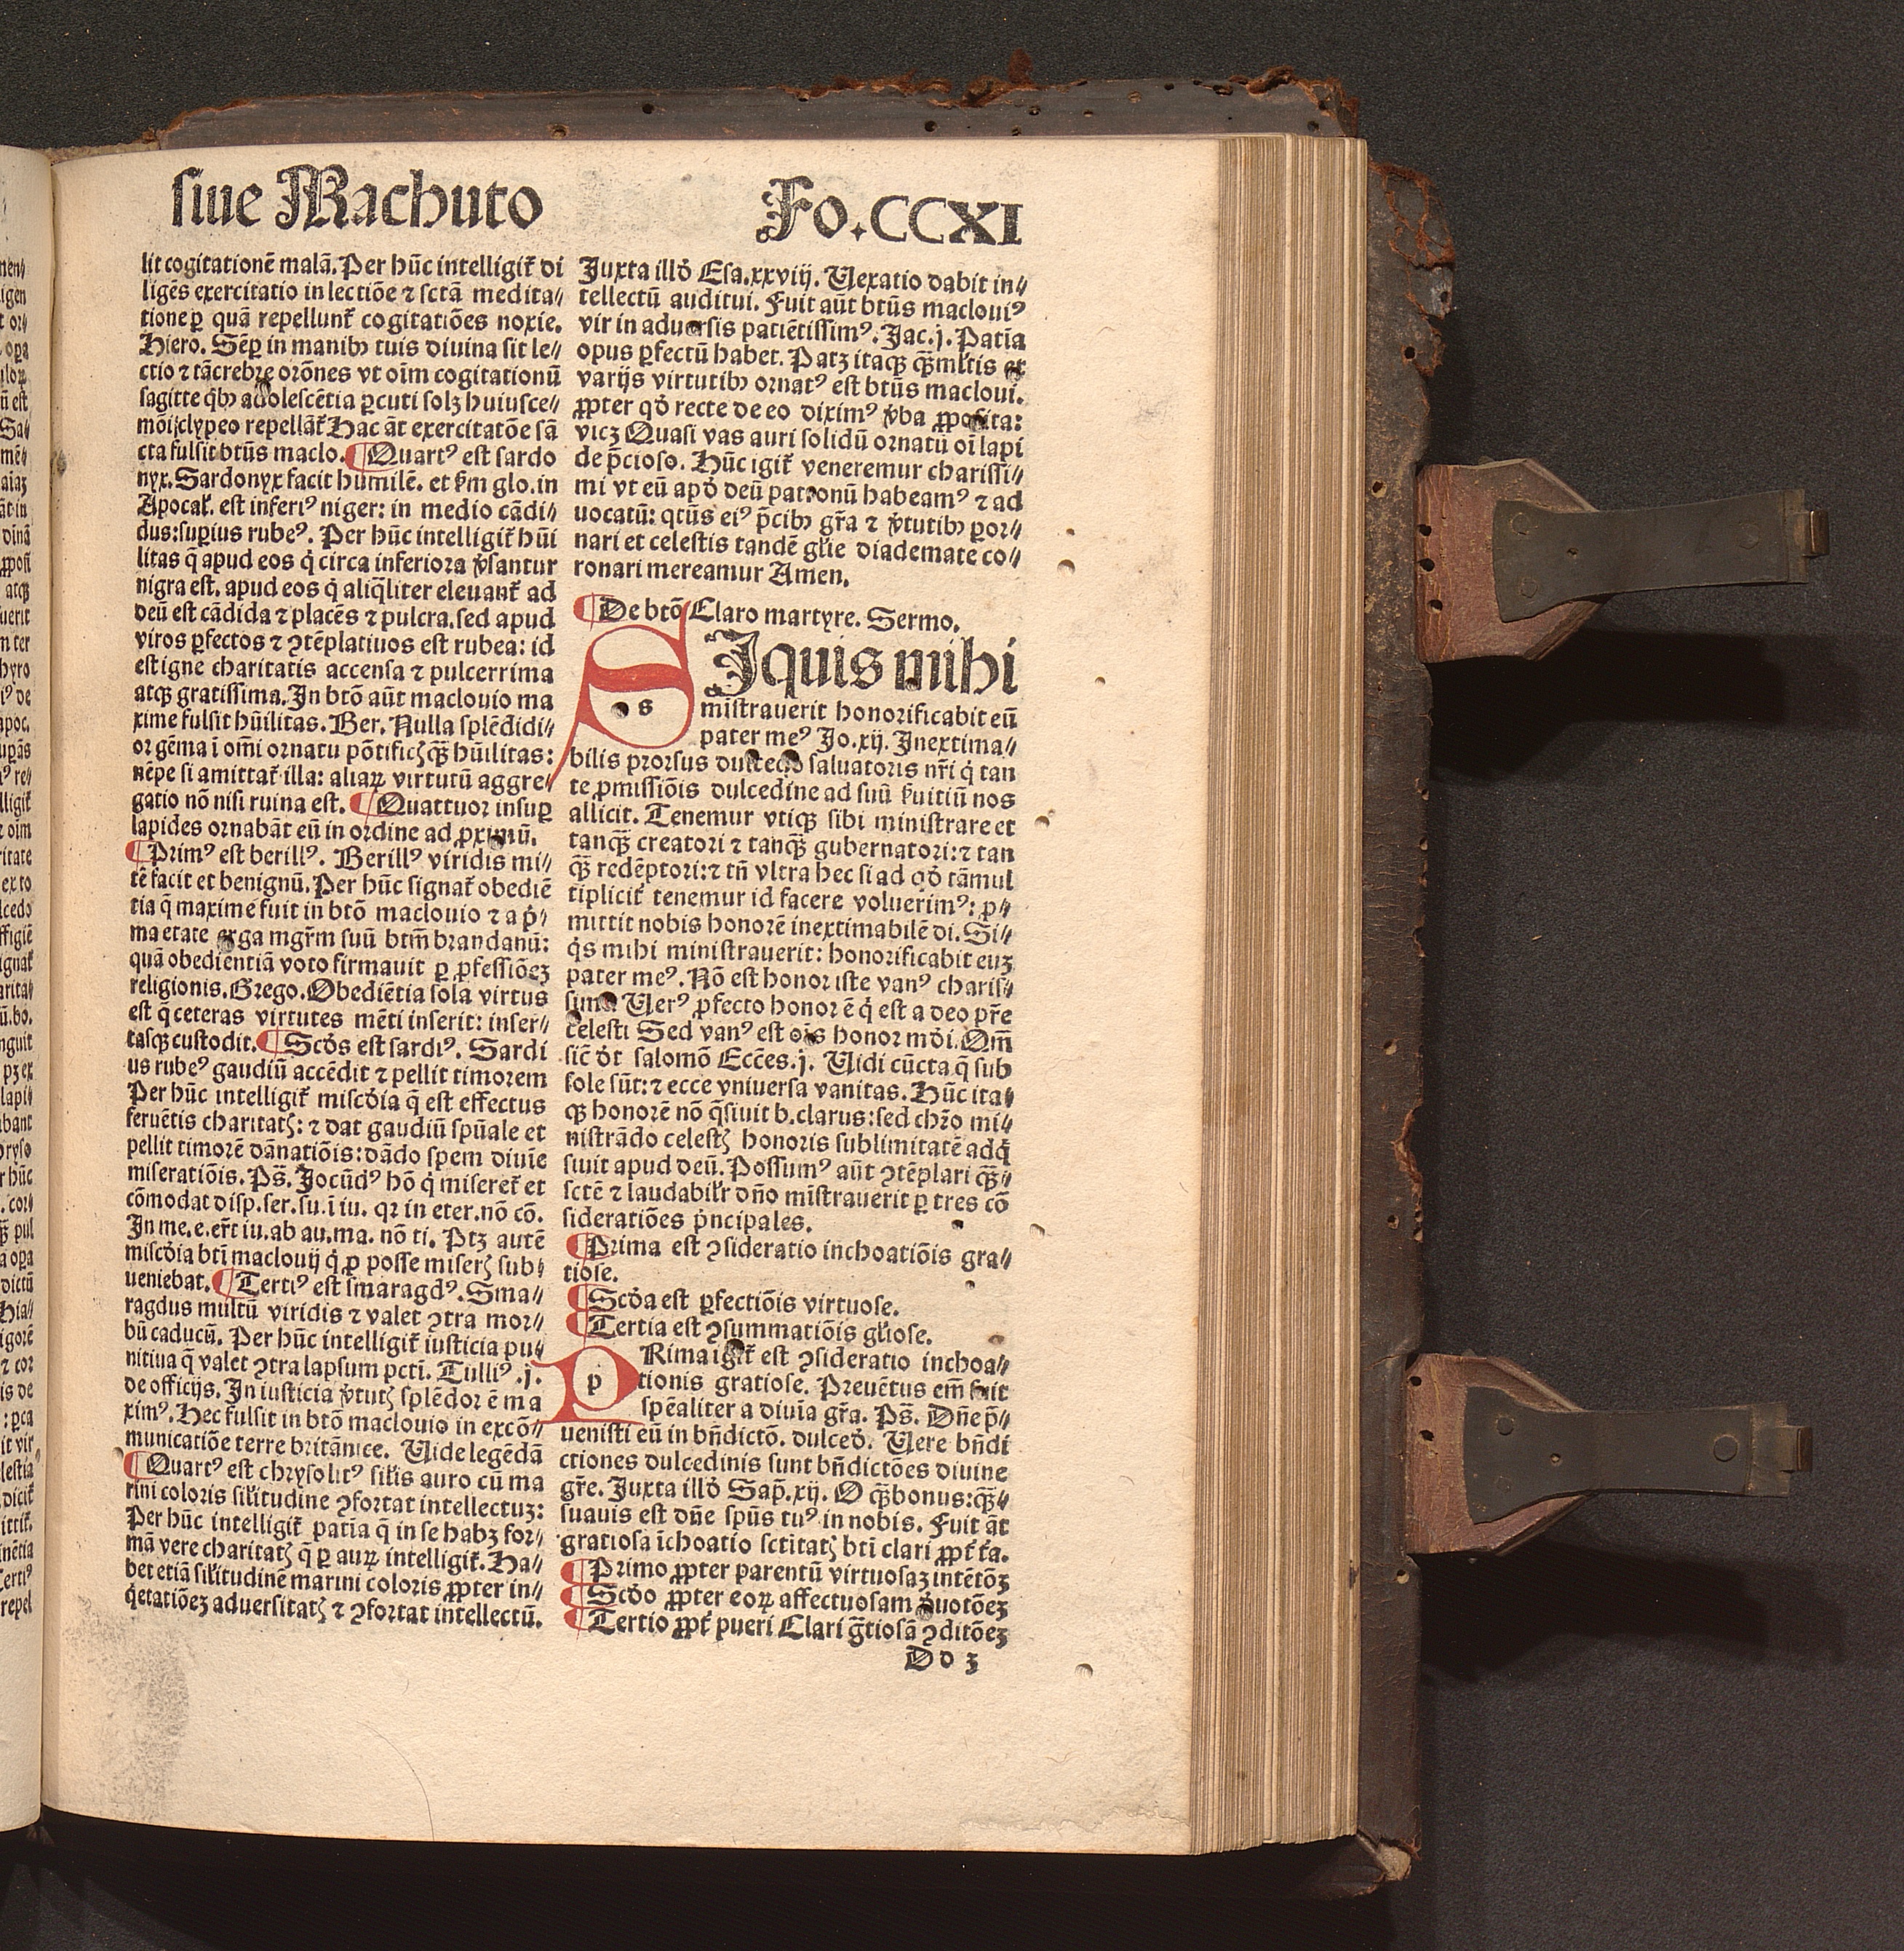 siue Machuto
Fo.CCXI
lit cogitationē malā. Per hūc intelligit̄ di
ligēs exercitatio in lectiōe ⁊ sctā medita⸗
tione ꝑ quā repellunt̄ cogitatiōes noxie.
Hiero. Sēꝑ in manibꝰ tuis diuina sit le⸗
ctio ⁊ tā crebre orōnes vt oīm cogitationū
sagitte q̇bꝰ adolescētia ꝑcuti solꝫ huiusce⸗
mōi clypeo repellāt̄ Hac āt exercitatōe sā
cta fulsit btūs maclo. ¶Quartꝰ est sardo
nyx. Sardonyx facit humilē. et ẜm glo. in
Apocal̄. est inferiꝰ niger: in medio cādi⸗
dus: suꝑius rubeꝰ. Per hūc intelligit̄ hūi
litas q̄ apud eos q̇ circa inferiora v̓santur
nigra est. apud eos q̇ aliq̄liter eleuant̄ ad
deū est cādida ⁊ placēs ⁊ pulcra. sed apud
viros ꝑfectos ⁊ ꝯtēplatiuos est rubea: id
est igne charitatis accensa ⁊ pulcerrima
atqꝫ gratissima. In btō aūt maclouio ma
xime fulsit hūilitas. Ber. Nulla splēdidi⸗
or gēma ī om̄i ornatu pōtificꝭ q̄ꝫ hūilitas:
nēpe si amittat̄ illa: aliaꝝ virtutū aggre⸗
gatio nō nisi ruina est. ¶Quattuor insuꝑ
lapides ornabāt eū in ordine ad ꝓximū.
¶Primꝰ est berillꝰ. Berillꝰ viridis mi⸗
tē facit et benignū. Per hūc signat̄ obediē
tia q̄ maxime fuit in btō maclouio ⁊ a p̓⸗
ma etate erga mgr̄m suū btm̄ brandanū:
quā obedientiā voto firmauit ꝑ ꝓfessiōeꝫ
religionis. Grego. Obediētia sola virtus
est q̄ ceteras virtutes mēti inserit: inser⸗
tasqꝫ custodit. ¶Scd̓s est sardiꝰ. Sardi
us rubeꝰ gaudiū accēdit ⁊ pellit timorem
Per hūc intelligit̄ miscd̓ia q̄ est effectus
feruētis charitatꝭ: ⁊ dat gaudiū spūale et
pellit timorē dānatiōis: dādo spem diuīe
miseratiōis. Ps̄. Jocūdꝰ hō q̇ miseret̄ et
cōmodat disp. ser. su. ī iu. qꝛ in eter. nō cō.
In me. e. er̄t iu. ab au. ma. nō ti. Ptꝫ autē
miscd̓ia bti maclouij q̇ ꝓ posse miserꝭ sub⸗
ueniebat. ¶Tertiꝰ est smaragdꝰ. Sma⸗
ragdus multū viridis ⁊ valet ꝯtra mor⸗
bū caducū. Per hūc intelligit̄ iusticia pu⸗
nitiua q̄ valet ꝯtra lapsum pcti. Tulliꝰ .j.
de officijs. In iusticia v̓tutꝭ splēdor ē ma
ximꝰ. Hec fulsit in btō maclouio in excō⸗
municatiōe terre britānice. Vide legēdā
¶Quartꝰ est chrysolitꝰ sil̄is auro cū ma
rini coloris sil̄itudine ꝯfortat intellectuꝫ:
Per hūc intelligit̄ patīa q̄ in se habꝫ for⸗
mā vere charitatꝭ q̄ ꝑ auꝝ intelligit̄. Ha⸗
bet etiā sil̄itudinē marini coloris ꝓpter in⸗
q̇etatiōeꝫ aduersitatꝭ ⁊ ꝯfortat intellectū.
Juxta illd̓ Esa. xxviij. Vexatio dabit in⸗
tellectū auditui. Fuit aūt btūs maclouiꝰ
vir in aduersis patiētissimꝰ. Jac. j. Patīa
opus ꝑfectū habet. Patꝫ itaqꝫ q̄ꝫ ml̄tis et
varijs virtutibꝰ ornatꝰ est btūs macloui.
ꝓpter qd̓ recte de eo diximꝰ v̓ba ꝓposita:
vicꝫ Quasi vas auri solidū ornatū oī lapi
de p̄cioso. Hūc igit̄ veneremur charissi⸗
mi vt eū apd̓ deū patronū habeamꝰ ⁊ ad
uocatū: qtūs eiꝰ p̄cibꝰ gr̄a ⁊ v̓tutibꝰ ꝑor⸗
nari et celestis tandē gl̄ie diademate co⸗
ronari mereamur Amen.
¶De btō Claro martyre. Sermo.
SIquis mihi
mīstrauerit honorificabit eū
pater meꝰ Jo. xij. Inextima⸗
bilis prorsus dulcedo saluatoris nr̄i q̇ tan
te ꝓmissiōis dulcedine ad suū ẜuitiū nos
allicit. Tenemur vtiqꝫ sibi ministrare et
tanq̄ꝫ creatori ⁊ tanq̄ꝫ gubernatori: ⁊ tan
q̄ꝫ redēptori: ⁊ tn̄ vltra hec si ad qd̓ tā mul
tiplicit̄ tenemur id facere voluerimꝰ: ꝓ⸗
mittit nobis honorē inextimabilē di. Si⸗
q̇s mihi ministrauerit: honorificabit euꝫ
pater meꝰ. Nō est honor iste vanꝰ charis⸗
simi Verꝰ ꝓfecto honor ē q̇ est a deo pr̄e
celesti Sed vanꝰ est oīs honor mdi. Qm̄
sic̄ d̓t salomō Ecces. j. Vidi cūcta q̄ sub
sole sūt: ⁊ ecce vniuersa vanitas. Hūc ita⸗
qꝫ honorē nō q̄siuit b. clarus: sed chr̄o mi⸗
nistrādo celestꝭ honoris sublimitatē adq̄
siuit apud deū. Possumꝰ aūt ꝯtēplari q̄ꝫ⸗
sctē ⁊ laudabil̄r dn̄o mīstrauerit ꝑ tres cō
sideratiōes p̓ncipales.
¶Prima est ꝯsideratio inchoatiōis gra⸗
tiose.
¶Scd̓a est ꝑfectiōis virtuose.
¶Tertia est ꝯsummatiōis gl̄iose.
PRima igit̄ est ꝯsideratio inchoa⸗
tionis gratiose. Preuētus em̄ fuit
spēaliter a diuīa gr̄a. Ps̄. Dn̄e p̄⸗
uenisti eū in bn̄dictō. dulced̓. Vere bn̄di
ctiones dulcedinis sunt bn̄dictōes diuine
gr̄e. Juxta illd̓ Sap̄. xij. O q̄ꝫ bonus: q̄ꝫ⸗
suauis est dn̄e spūs tuꝰ in nobis. Fuit āt
gratiosa īchoatio sctitatꝭ bti clari ꝓpt̄ t̄a.
¶Primo ꝓpter parentū virtuosaꝫ intētōꝫ
¶Scd̓o ꝓpter eoꝝ affectuosam d̓uotōeꝫ
¶Tertio ꝓpt̄ pueri Clari ḡtiosā ꝯditōeꝫ
Dd 3